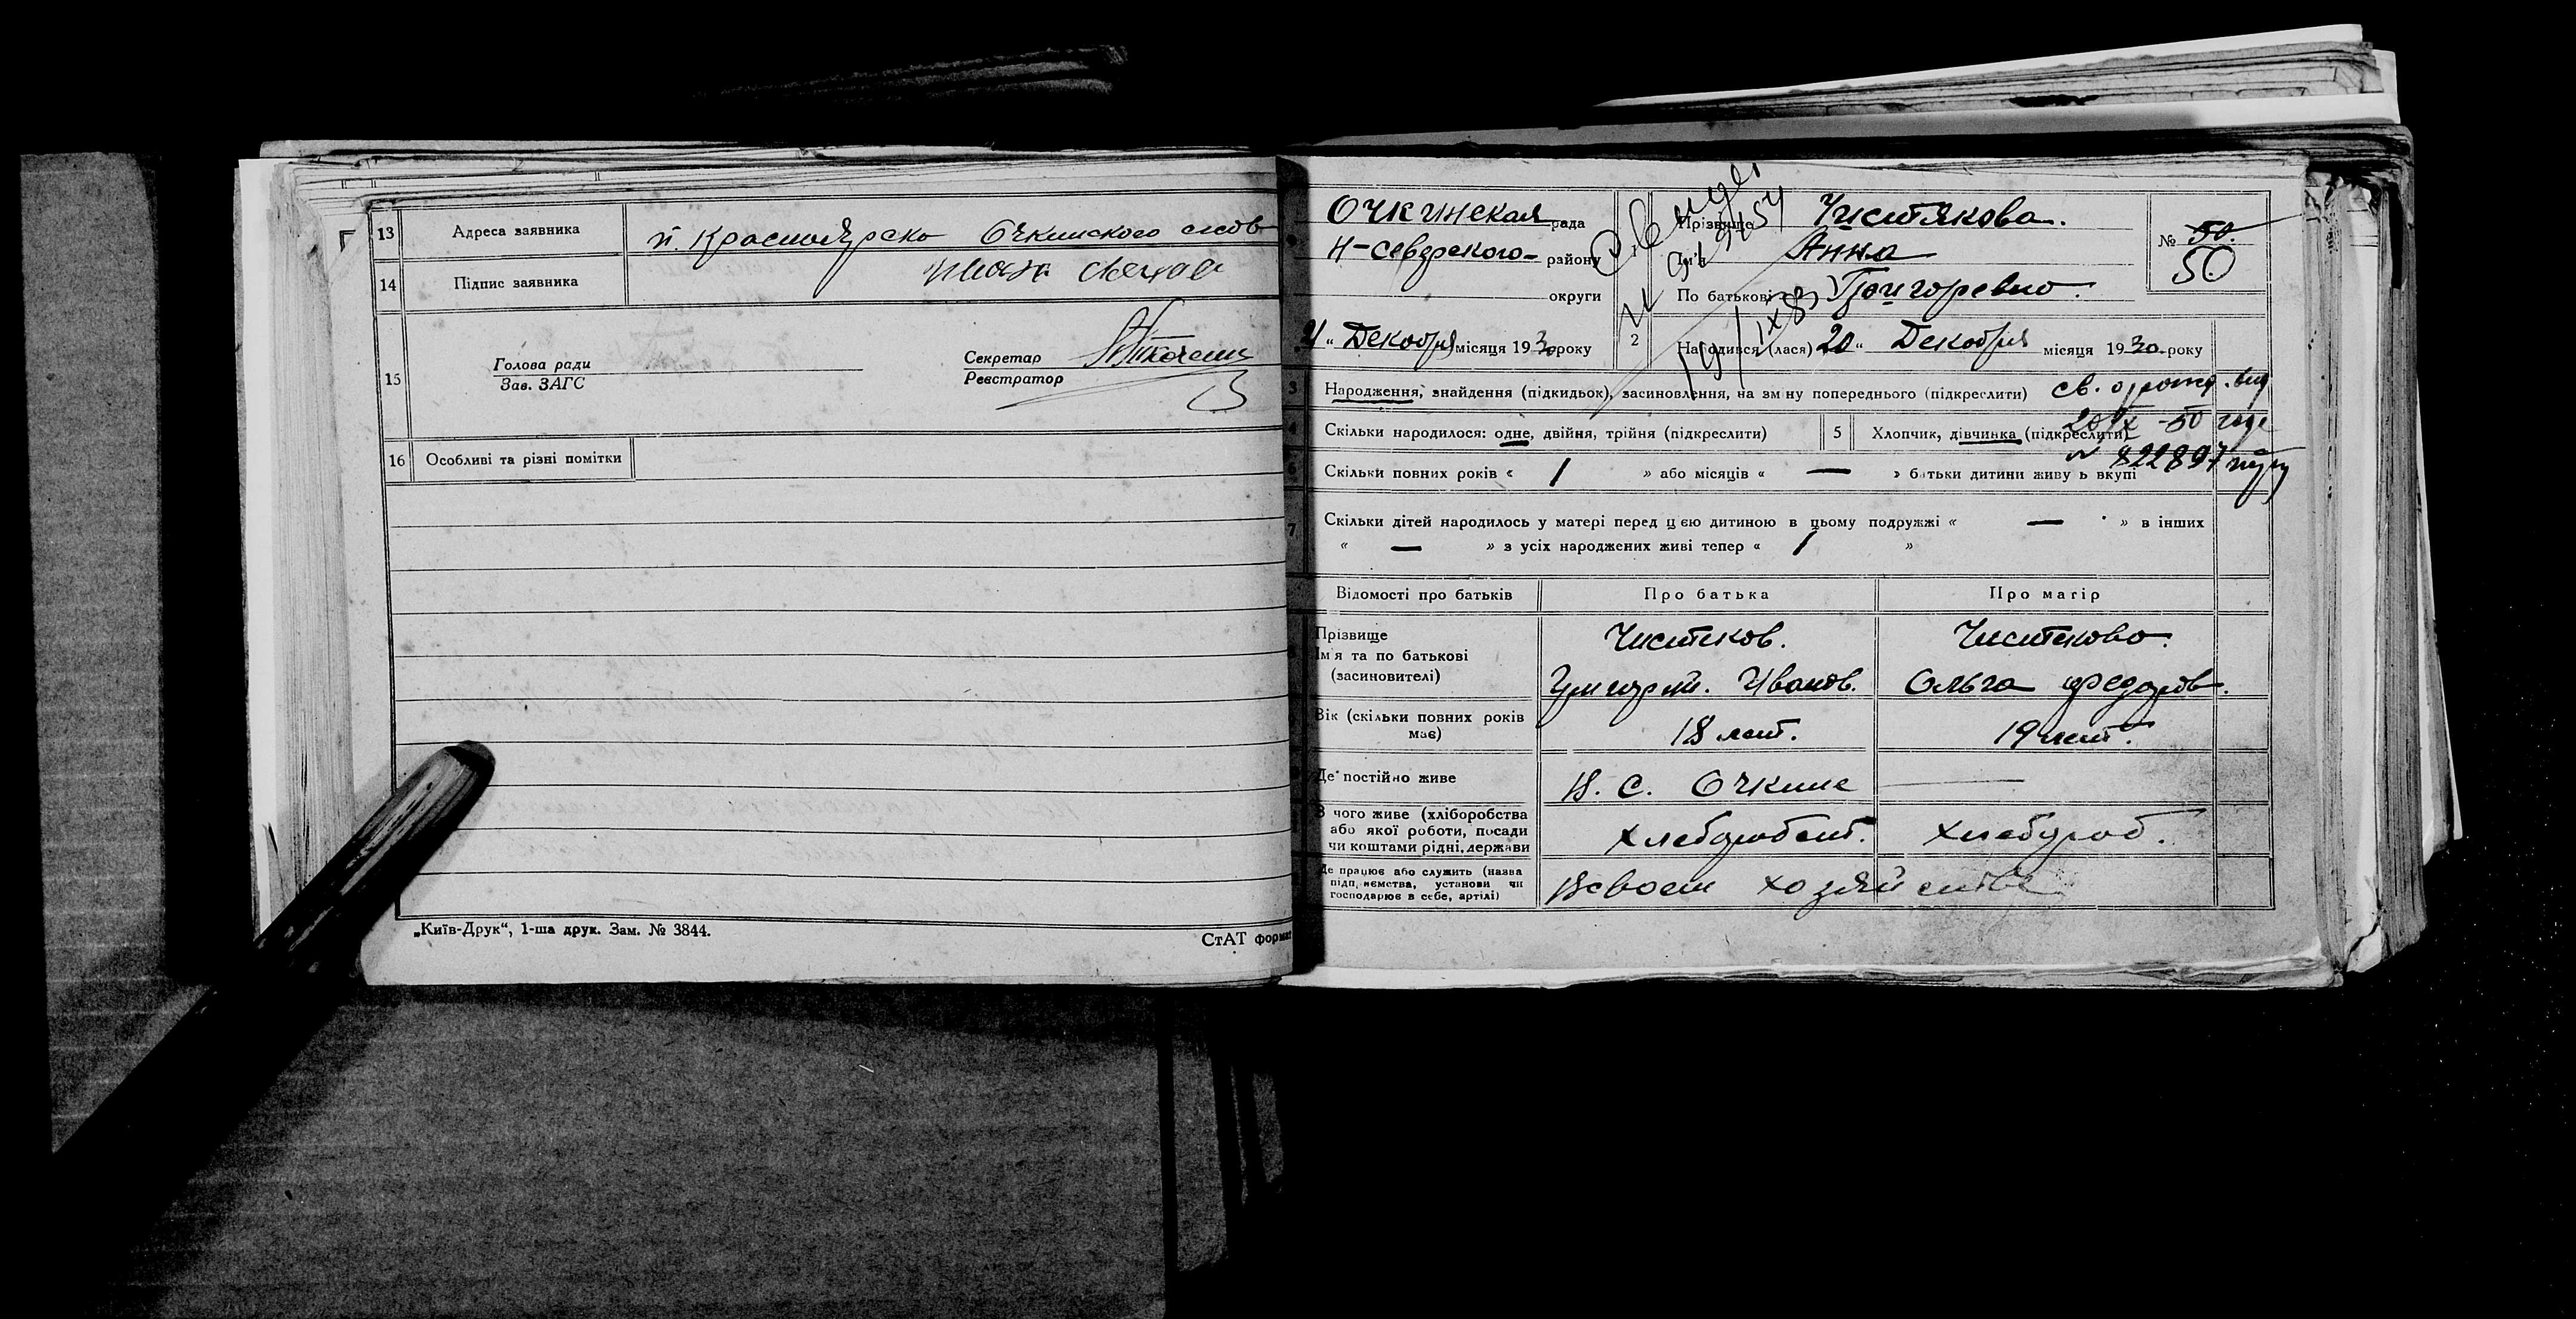 13 Адреса заявника п. Красноярско Очкинского
14 Підпис заявника
15 Голова ради
Зав. ЗАГС
Секретар
Реєстратор
16 Особливі та різні помітки
„Київ-Друк“, 1-ша друк. Зам. № 3844.
СтАТ формат
Очкинская рада
Н-Северского- району
округи
„ Декобря місяця 1930 року
1 Прізвище Чистякова.
Ім'я Анна
По батькові Григоревно.
№ 50.
50
2 Народився (лася) 20 „ Декобря місяця 1930 року
3 Народження, знайдення (підкидьок), засиновлення, на зміну попереднього (підкреслити) св. о рожд. выд
20/IX -50 годе
№ 822897
4 Скільки народилося: одне, двійня, трійня (підкреслити)
5 Хлопчик, дівчинка (підкреслити)
6 Скільки повних років « 1 » або місяців « — » батьки дитини живуть вкупі
7 Скільки дітей народилось у матері перед цією дитиною в цьому подружжі « — » в інших
« — » з усіх народжених живі тепер « 1 »
Відомості про батьків Про батька Про матір
Прізвище Чистеков. Чистеково.
Ім'я та по батькові
(засиновителі) Григорий. Иванов. Ольга Федоров.
Вік (скільки повних років
має) 18 лет. 19 лет.
Де постійно живе В. С. Очкине —
З чого живе (хліборобства
або якої роботи, посади
чи коштами рідні, держави Хлеборобст. Хлебороб.
Де працює або служить (назва
підприємства, установи чи
господарює в себе, артілі) В своем хозяйстве